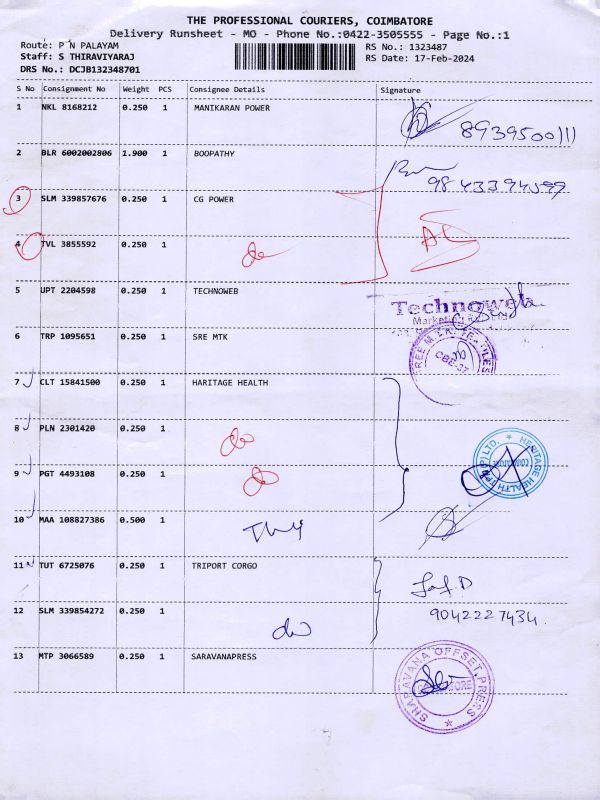 THE PROFESSIONAL COURIERS, COIMBATORE
Delivery Runsheet - MO - Phone No.:0422-3505555 - Page No.:1
Route: P N PALAYAM RS No.: 1323487
Staff: S THIRAVIYARAJ RS Date: 17-Feb-2024
DRS No.: DCJB132348701
S No Consignment No Weight PCS Consignee Details Signature
1 NKL 8168212 0.250 1 MANIKARAN POWER
8939500111
2 BLR 6002002806 1.900 1 BOOPATHY
9843394599
3 SLM 339857676 0.250 1 CG POWER
4 TVL 3855592 0.250 1
5 UPT 2204598 0.250 1 TECHNOWEB
Technoweb
Marketing
6 TRP 1095651 0.250 1 SRE MTK
CBE-37
7 CLT 15841500 0.250 1 HARITAGE HEALTH
8 PLN 2301420 0.250 1
HERITAGE HEALTH TPA (P) LTD.
9 PGT 4493108 0.250 1
10 MAA 108827386 0.500 1
11 TUT 6725076 0.250 1 TRIPORT CORGO
12 SLM 339854272 0.250 1
9042227434.
13 MTP 3066589 0.250 1 SARAVANAPRESS
SHARAVANA OFFSET PRESS